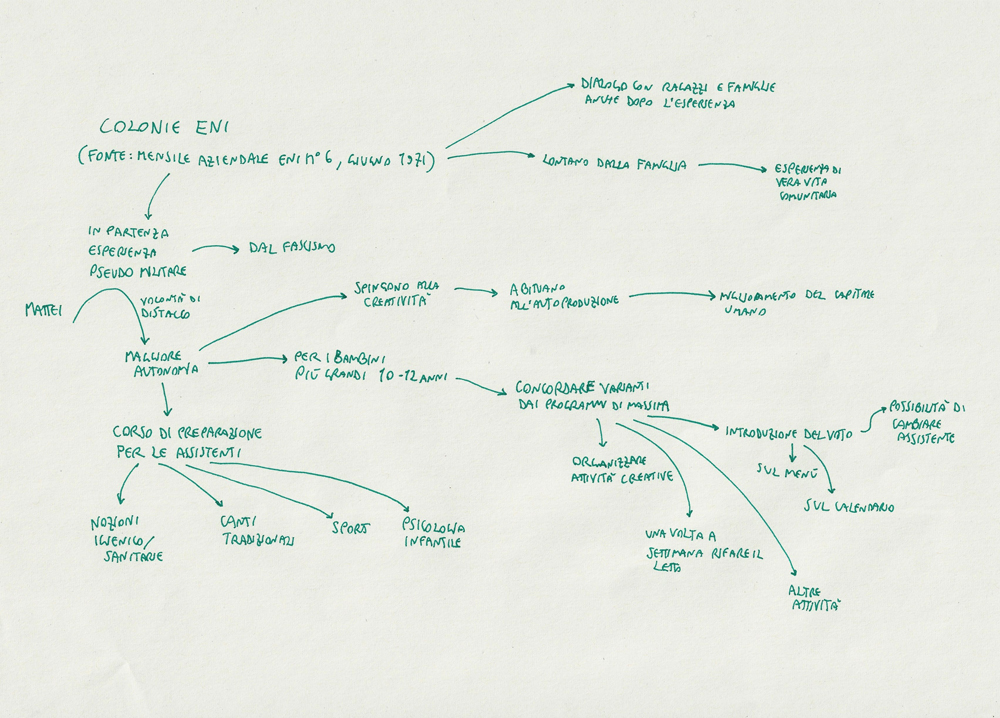 COLONIE ENI
(FONTE: MENSILE AZIENDALE ENI N° 6, GIUGNO 1971)
DIALOGO CON RAGAZZI E FAMIGLIE
ANCHE DOPO L'ESPERIENZA
LONTANO DALLA FAMIGLIA
ESPERIENZA DI
VERA VITA
COMUNITARIA
IN PARTENZA
ESPERIENZA
PSEUDO MILITARE
DAL FASCISMO
MATTEI
VOLONTÀ DI
DISTACCO
MAGGIORE
AUTONOMIA
SPINGONO ALLA
CREATIVITÀ
ABITUANO
ALL'AUTOPRODUZIONE
MIGLIORAMENTO DEL CAPITALE
UMANO
PER I BAMBINI
PIÙ GRANDI 10-12 ANNI
CONCORDARE VARIANTI
DAI PROGRAMMI DI MASSIMA
INTRODUZIONE DEL VOTO
POSSIBILITÀ DI
CAMBIARE
ASSISTENTE
SUL MENÙ
SUL CALENDARIO
ORGANIZZARE
ATTIVITÀ CREATIVE
UNA VOLTA A
SETTIMANA RIFARE IL
LETTO
ALTRE
ATTIVITÀ
CORSO DI PREPARAZIONE
PER LE ASSISTENTI
NOZIONI
IGIENICO/
SANITARIE
CANTI
TRADIZIONALI
SPORT
PSICOLOGIA
INFANTILE